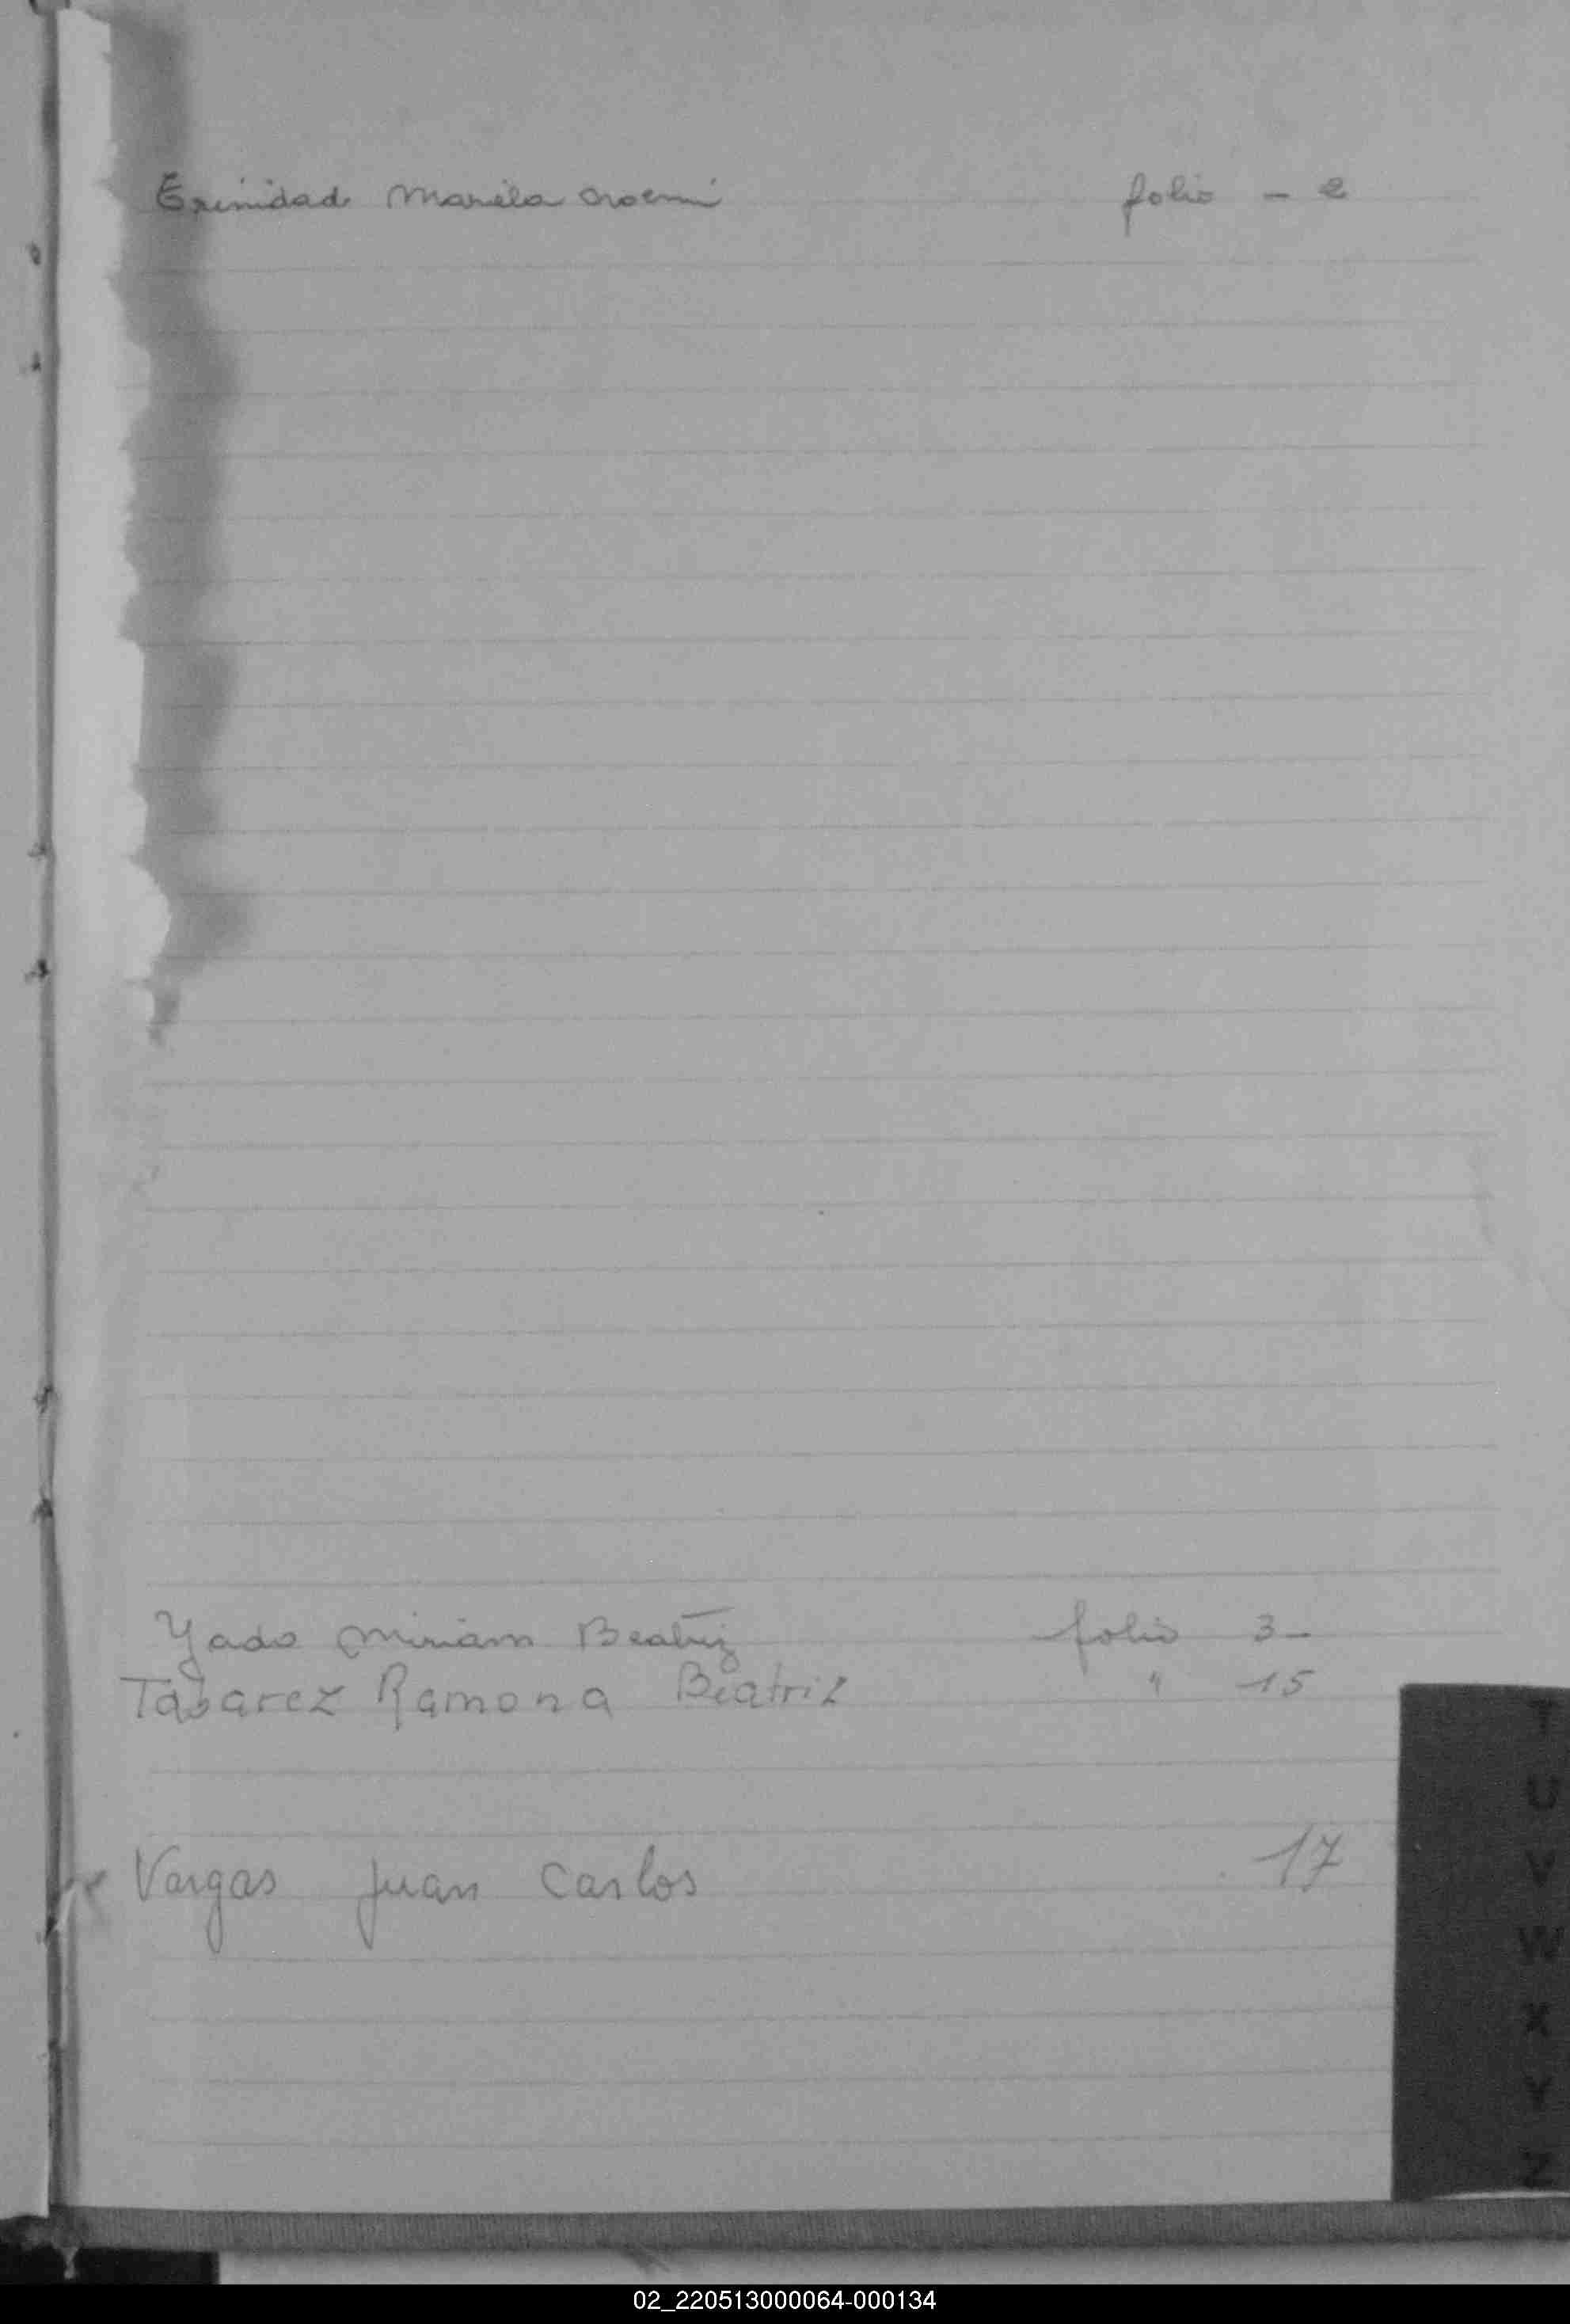 Trinidad Mariela Noemi folio - 2
Yado Miriam Beatriz folio 3-
Tabarez Ramona Beatriz " 15
Vargas Juan Carlos 17
T
U
V
W
X
Y
Z
02_220513000064-000134